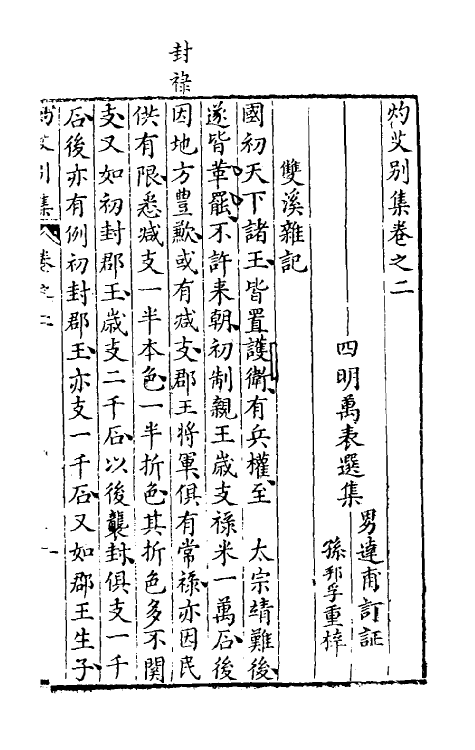 封祿
灼艾別集卷之二
四明萬表選集
男達甫訂証
孫邦孚重梓
雙溪雜記
國初天下諸王皆置護衛有兵權至　太宗靖難後
遂皆革罷不許來朝初制親王歲支祿米一萬石後
因地方豊歉或有减支郡王將軍俱有常祿亦因民
供有限悉减支一半本色一半折色其折色多不關
支又如初封郡王歲支二千石以後襲封俱支一千
石後亦有例初封郡王亦支一千石又如郡王生子
灼艾別集　卷之二　一